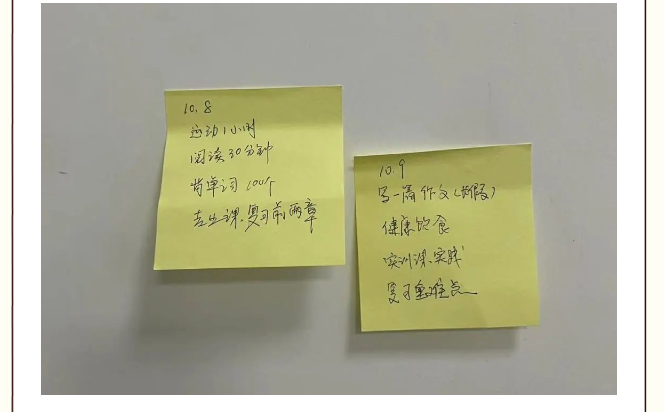 10.8
运动1小时
阅读30分钟
背单词 100个
专业课.复习前两章
10.9
写一篇作文(
健康饮食
实训课.实践
复习重难点